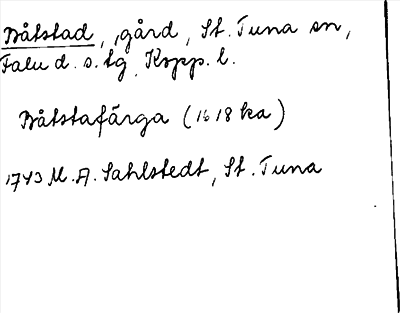 Båtstad, gård, St. Tuna sn,
Falu d. s. tg. Kopp. l.
Båtstafärga (1618 ka)
1743 M. A. Sahlstedt, St. Tuna